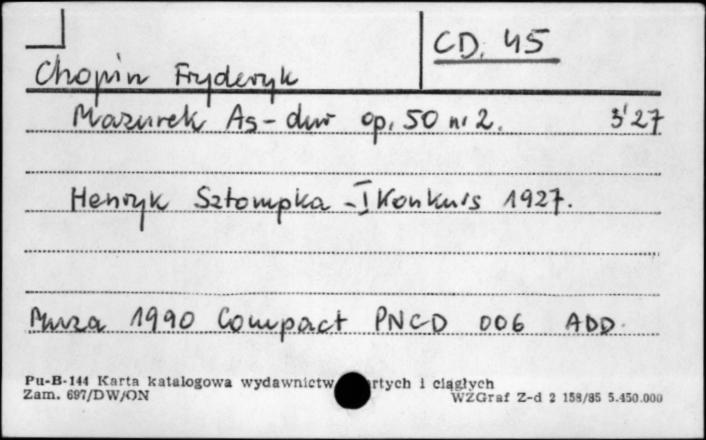 CD. 45
Chopin Fryderyk
Mazurek As-dur op. 50 nr 2. 3'27
Henryk Sztompka - I Konkurs 1927.
Muza 1990 Compact PNCD 006 ADD.
Pu-B-144 Karta katalogowa wydawnictw i ciągłych
Zam. 697/DW/ON WZGraf Z-d 2 158/85 5.450.000